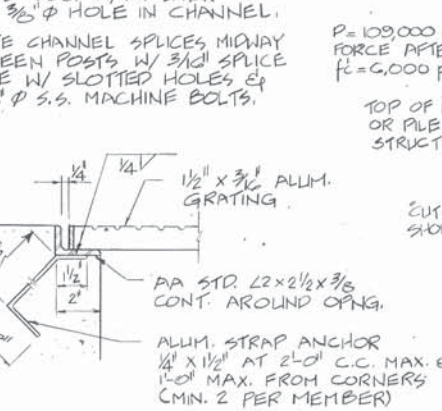 3/8" Φ HOLE IN CHANNEL.
E CHANNEL SPLICES MIDWAY
EEN POSTS W/ 3/16" SPLICE
E W/ SLOTTED HOLES &
" Φ S.S. MACHINE BOLTS.
P = 109,000
FORCE AFTE
f'c = 6,000 P
TOP OF
OR PILE
STRUCT
CUT
SHO
1/4"
1/4 V
1 1/2" x 3/16" ALUM.
GRATING
1 1/2"
2"
AA STD. L2 x 2 1/2 x 3/8
CONT. AROUND OPNG.
ALUM. STRAP ANCHOR
1/4" x 1 1/2" AT 2'-0" C.C. MAX. &
1'-0" MAX. FROM CORNERS
(MIN. 2 PER MEMBER)